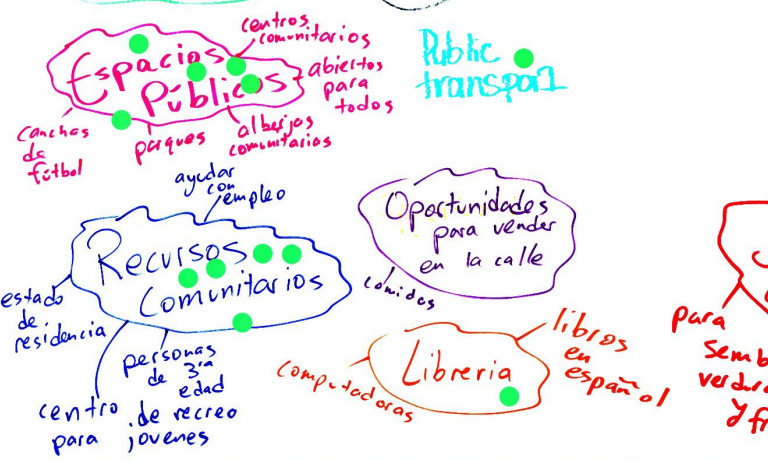 Espacios
Públicos
centros
comunitarios
abiertos
para
todos
albeijas
comunitarias
parques
canchas
de
fútbol
Public
transport
ayudar
con
empleo
Recursos
Comunitarios
estado
de
residencia
personas
de 3ra
edad
centro de recreo
para jovenes
Oportunidades
para vender
en la calle
comidas
Libreria
libros
en
español
computadoras
para
verdura